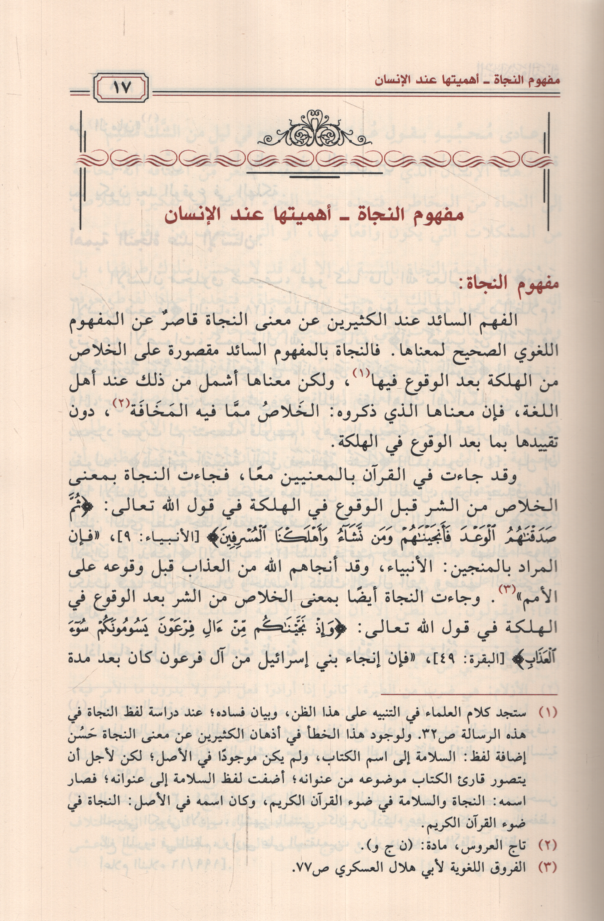 مفهوم النجاة ـ أهميتها عند الإنسان
١٧
مفهوم النجاة ـ أهميتها عند الإنسان
مفهوم النجاة:
الفهم السائد عند الكثيرين عن معنى النجاة قاصرٌ عن المفهوم
اللغوي الصحيح لمعناها. فالنجاة بالمفهوم السائد مقصورة على الخلاص
من الهلكة بعد الوقوع فيها(١)، ولكن معناها أشمل من ذلك عند أهل
اللغة، فإن معناها الذي ذكروه: الخَلاصُ ممَّا فيه المَخَافَة(٢)، دون
تقييدها بما بعد الوقوع في الهلكة.
وقد جاءت في القرآن بالمعنيين معًا، فجاءت النجاة بمعنى
الخلاص من الشر قبل الوقوع في الهلكة في قول الله تعالى: ﴿ثُمَّ
صَدَقْنَٰهُمُ ٱلْوَعْدَ فَأَنجَيْنَٰهُمْ وَمَن نَّشَآءُ وَأَهْلَكْنَا ٱلْمُسْرِفِينَ﴾ [الأنبياء: ٩]، «فإن
المراد بالمنجين: الأنبياء، وقد أنجاهم الله من العذاب قبل وقوعه على
الأمم»(٣). وجاءت النجاة أيضًا بمعنى الخلاص من الشر بعد الوقوع في
الهلكة في قول الله تعالى: ﴿وَإِذْ نَجَّيْنَٰكُم مِّنْ ءَالِ فِرْعَوْنَ يَسُومُونَكُمْ سُوٓءَ
ٱلْعَذَابِ﴾ [البقرة: ٤٩]، «فإن إنجاء بني إسرائيل من آل فرعون كان بعد مدة
(١) ستجد كلام العلماء في التنبيه على هذا الظن، وبيان فساده؛ عند دراسة لفظ النجاة في
هذه الرسالة ص٣٢. ولوجود هذا الخطأ في أذهان الكثيرين عن معنى النجاة حَسُن
إضافة لفظ: السلامة إلى اسم الكتاب، ولم يكن موجودًا في الأصل؛ لكن لأجل أن
يتصور قارئ الكتاب موضوعه من عنوانه؛ أضفت لفظ السلامة إلى عنوانه؛ فصار
اسمه: النجاة والسلامة في ضوء القرآن الكريم، وكان اسمه في الأصل: النجاة في
ضوء القرآن الكريم.
(٢) تاج العروس، مادة: (ن ج و).
(٣) الفروق اللغوية لأبي هلال العسكري ص٧٧.